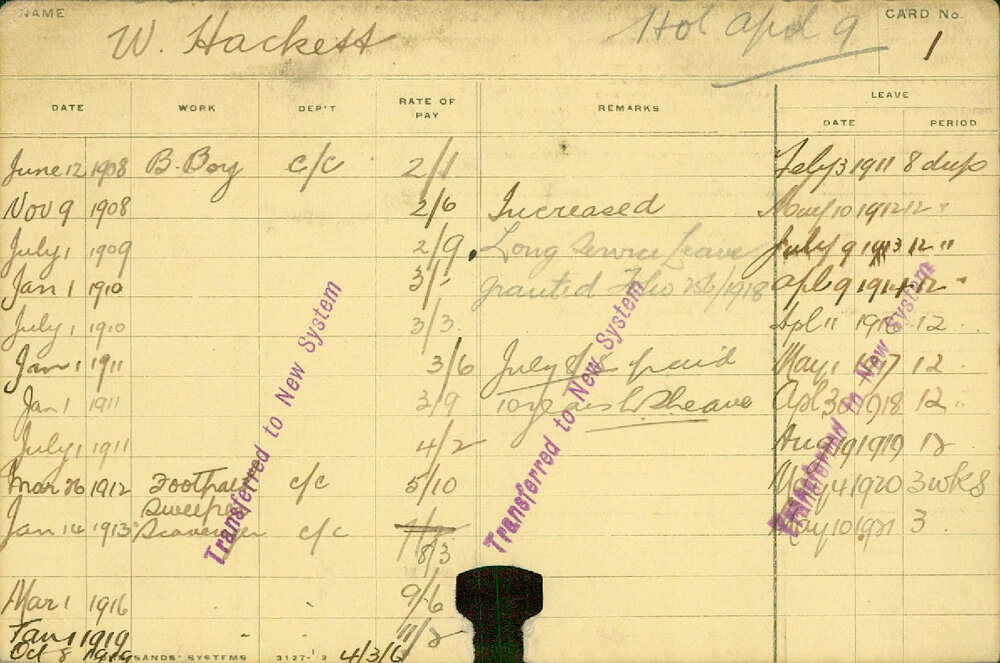 NAME W. Hackett Hol april 9 CARD No. 1
DATE WORK DEP'T RATE OF PAY REMARKS LEAVE
DATE PERIOD
June 12 1908 B. Boy c/c 2/1 Feby 3 1911 8 days
Nov 9 1908 2/6 Increased May 10 1912 12 "
July 1 1909 2/9 Long Service Leave July 9 1913 12 "
Jan 1 1910 3/- granted 1918 Apl 9 1914 12 "
July 1 1910 3/3 Apl 11 12 "
Jan 1 1911 3/6 July paid May 1 1917 12
Jan 1 1911 3/9 10 years Leave Apl 30 1918 12 "
July 1 1911 4/2 Aug 1919 12
Mar 26 1912 Footpath c/c 5/10 May 4 1920 3 wks
Sweeper
Jan 14 1913 Scavenger c/c May 10 1921 3
8/3
Mar 1 1916 9/6
Jan 1 1919 11/2
Oct 8 1919 SANDS' SYSTEMS 3127-1/2 4/3/6
Transferred to New System
Transferred to New System
Transferred to New System